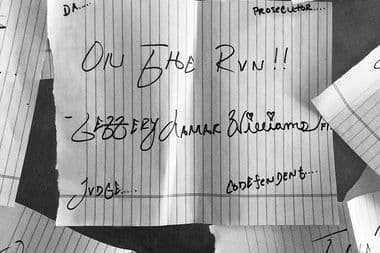 DA.... PROSECUTOR....
ON THE RUN!!
JEFFERY LAMAR Williams
JUDGE..... CODEFENDENT....